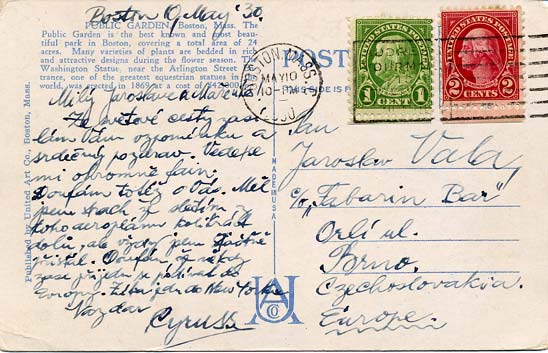 Boston 9. May '30.
PUBLIC GARDEN, Boston, Mass. The
Public Garden is the best known and most beau-
tiful park in Boston, covering a total of 24
acres. Many varieties of plants are bedded in rich
and attractive designs during the flower season. The
Washington Statue, near the Arlington Street
trance, one of the greatest equestrian statues in
world, was erected in 1869 at a cost of
Milý Jaroslave a
Ze světové cesty zasí-
lám Vám vzpomínku a
srdečný pozdrav. Vedepe
mi ohromně fain.
Doufám totéž o Vás. Měl
jsem strach že sletím z
toho aeroplánu kolikrát
dolů, ale vždy jsem šťastně
přistál. Doufám, že někdy
zase přijedu se podívat do
Evropy. Zítra jedu do New Yorku
Nazdar
Cyruss
Published by United Art Co., Boston, Mass.
MADE IN USA
UA
CO
POSTC
THIS SIDE IS F
BOSTON, MASS.
MAY 10
10-PM
1930
UNITED STATES POSTAGE
1 CENT 1
UNITED STATES POSTAGE
2 CENTS 2
Pan
Jaroslav Vala,
c/o „Tabarin Bar"
Orlí ul.
Brno.
Czechoslovakia.
Europe.